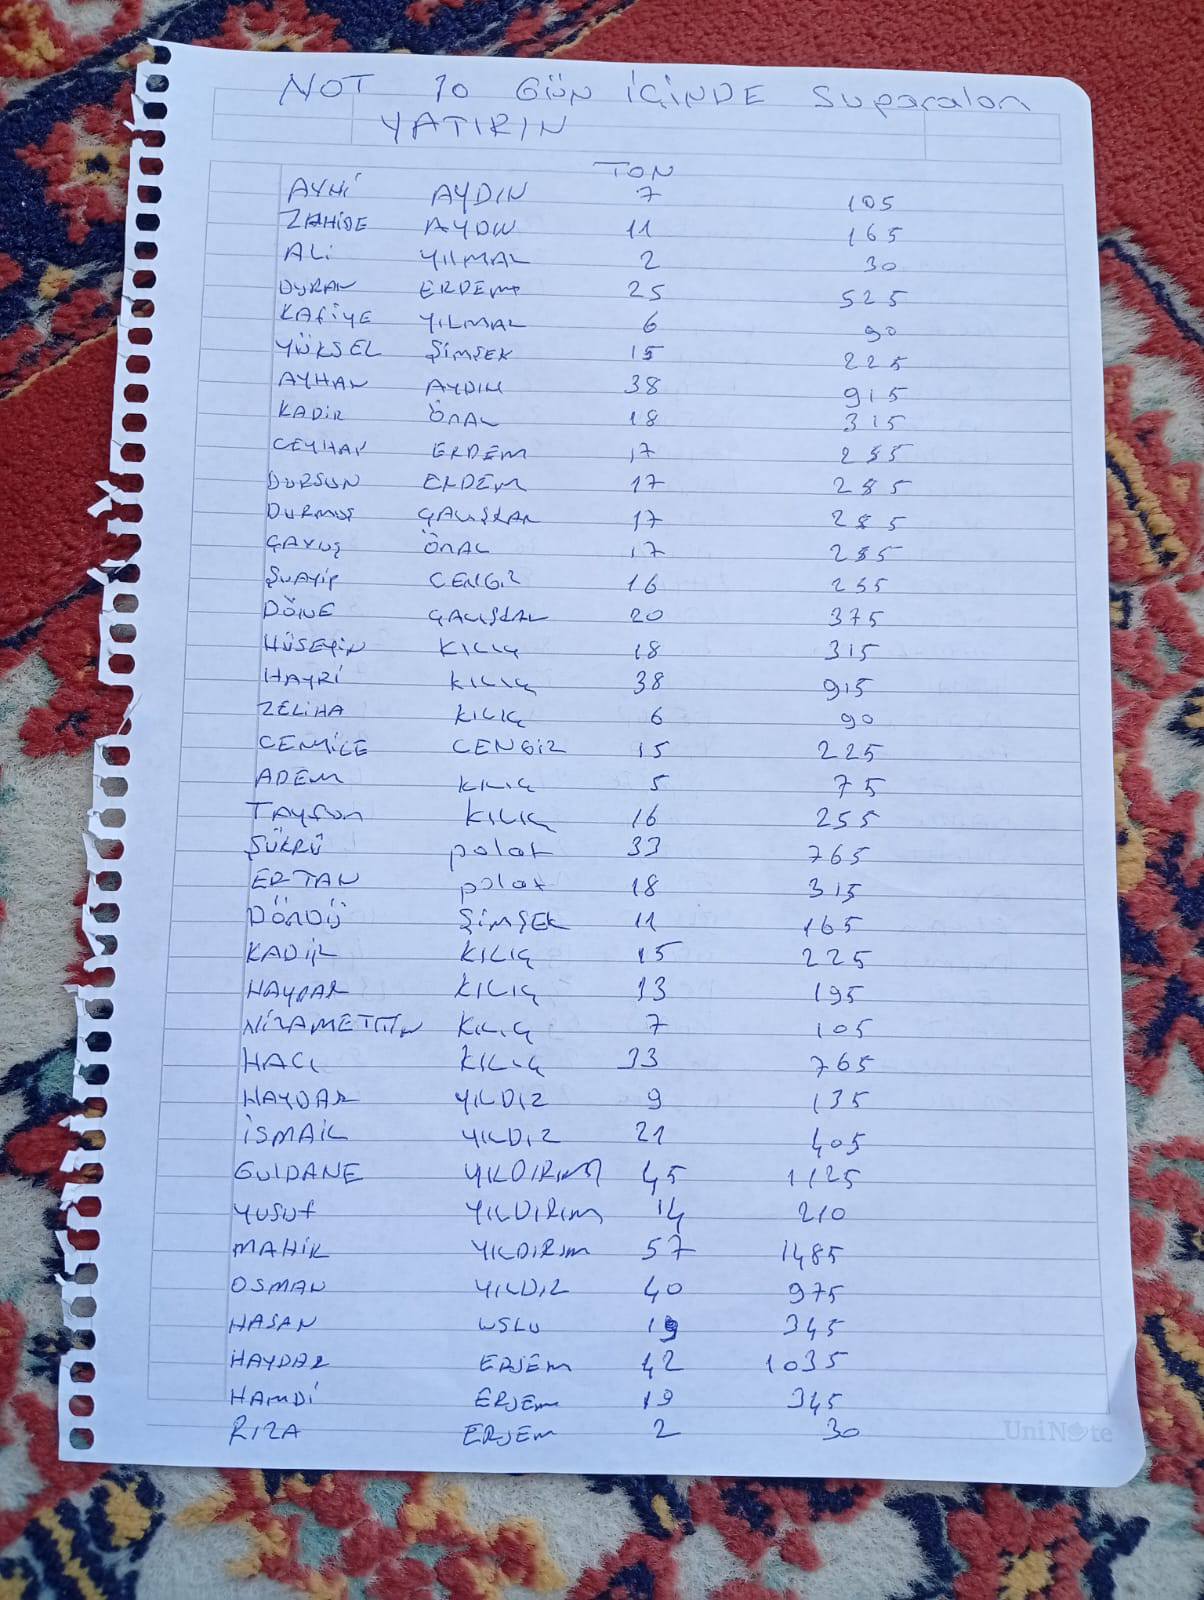 NOT 10 GÜN İÇİNDE Suparaları
YATIRIN
TON
AYNİ AYDIN 7 105
ZAHİDE AYDIN 11 165
ALİ YILMAZ 2 30
DURAN ERDEM 25 525
KAFİYE YILMAZ 6 90
YÜKSEL ŞİMŞEK 15 225
AYHAN AYDIN 38 915
KADİR ÖNAL 18 315
CEYHAN ERDEM 17 285
DURSUN ERDEM 17 285
DURMUŞ ÇALIŞKAN 17 285
ÇAVUŞ ÖNAL 17 285
ŞUAYİP CENGİZ 16 255
DÖNE ÇALIŞKAN 20 375
HÜSEYİN KILIÇ 18 315
HAYRİ KILIÇ 38 915
ZELİHA KILIÇ 6 90
CEMİLE CENGİZ 15 225
ADEM KILIÇ 5 75
TAYfun KILIÇ 16 255
ŞÜKRÜ polat 33 765
ERTAN polat 18 315
DÖNDÜ ŞİMŞEK 11 165
KADİR KILIÇ 15 225
HAYDAR KILIÇ 13 195
NİZAMETTİN KILIÇ 7 105
HACI KILIÇ 33 765
HAYDAR YILDIZ 9 135
İSMAİL YILDIZ 21 405
GULDANE YILDIRIM 45 1125
YUSUf YILDIRIM 14 210
MAHİR YILDIRIM 57 1485
OSMAN YILDIZ 40 975
HASAN USLU 19 345
HAYDAR ERJEM 42 1035
HAMDİ ERJEM 19 345
RIZA ERJEM 2 30
UniNote